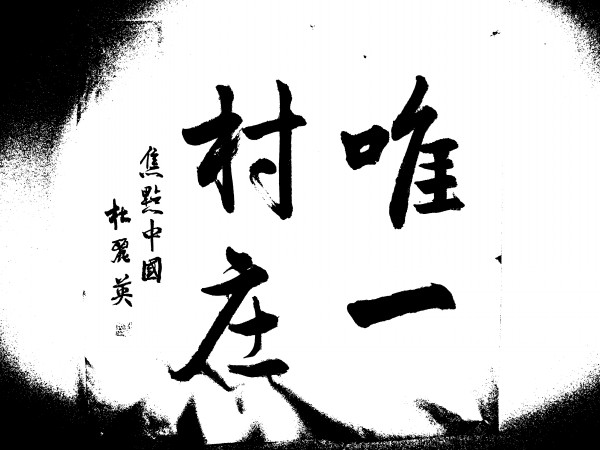 唯一
村庄
焦點中國
杜麗英